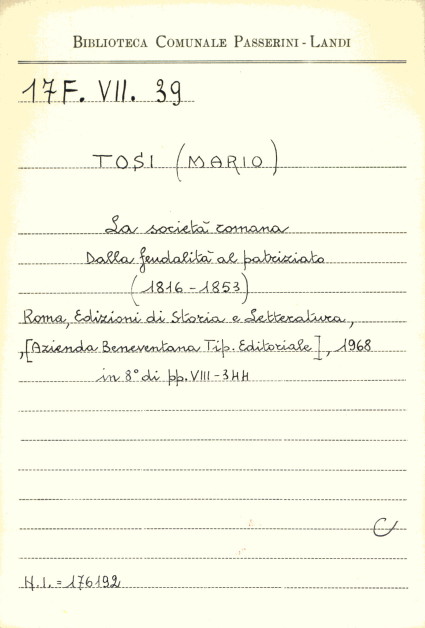 BIBLIOTECA COMUNALE PASSERINI - LANDI
17F. VII. 39
TOSI (MARIO)
La società romana
Dalla feudalità al patriziato
(1816 - 1853)
Roma, Edizioni di Storia e Letteratura,
,[Azienda Beneventana Tip. Editoriale], 1968
in 8° di pp. VIII-344
C
N.I. = 176192